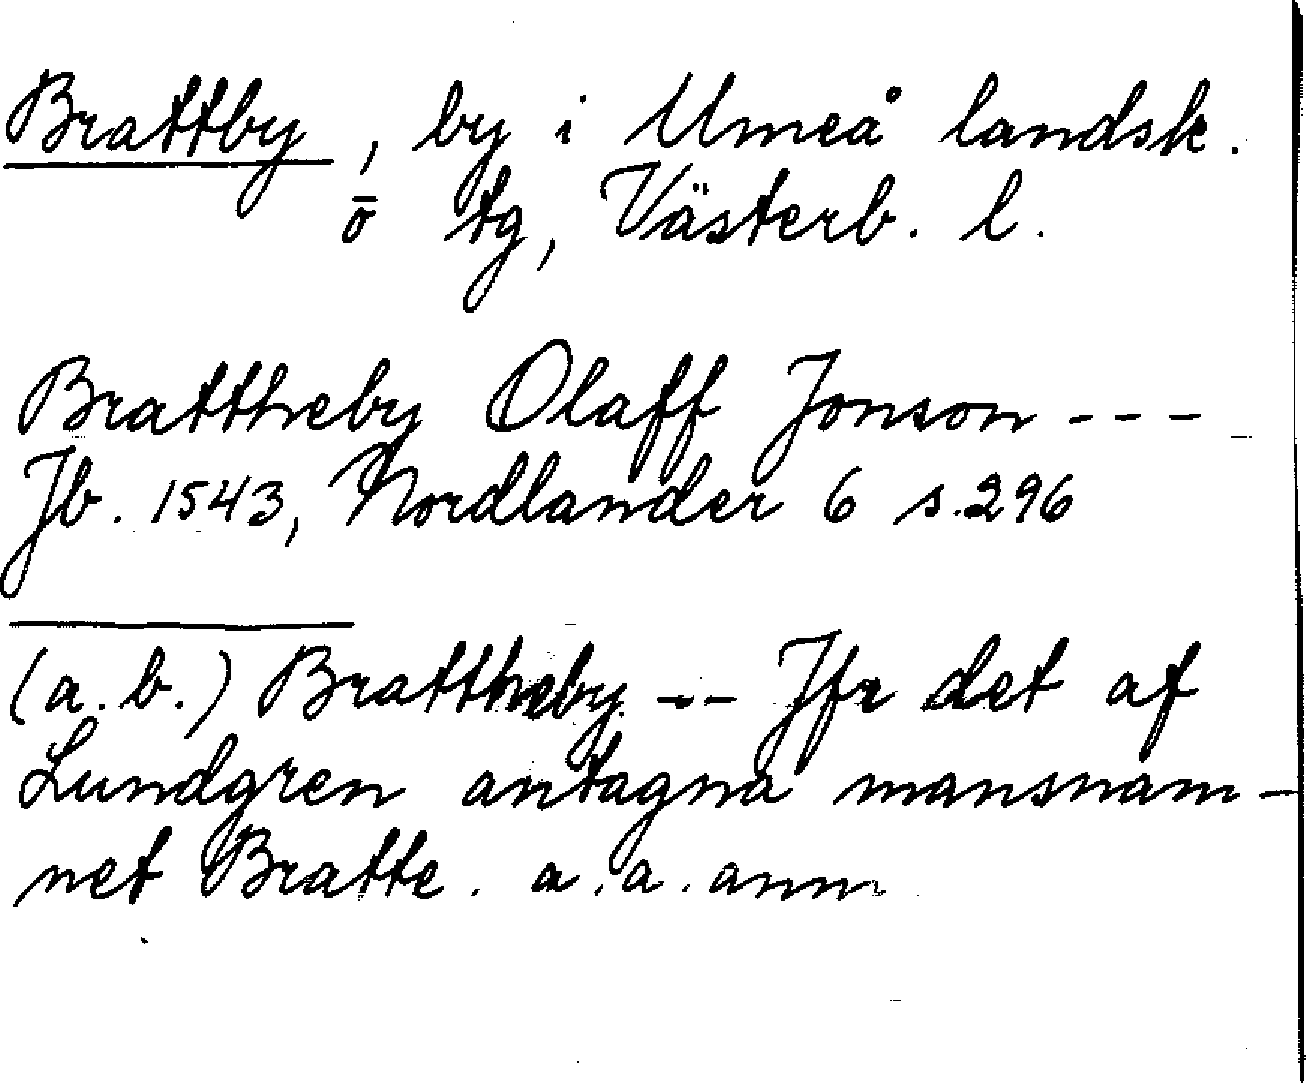 Brattby, by i Umeå landsk.
o tg, Västerb. l.
Brattheby Olaff Jonson ---
Jb. 1543, Nordlander 6 s.296
(a.b.) Brattheby -- Jfr det af
Lundgren antagna mansnam-
net Bratte. a.a. anm